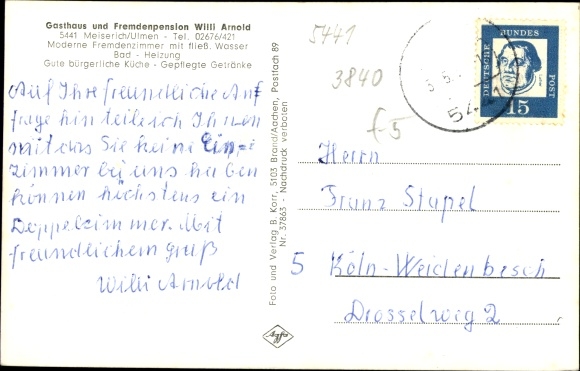 Gasthaus und Fremdenpension Willi Arnold
5441 Meiserich/Ulmen - Tel. 02676/421
Moderne Fremdenzimmer mit fließ. Wasser
Bad - Heizung
Gute bürgerliche Küche - Gepflegte Getränke
Auf Ihre freundliche Anf
frage hin teile ich Ihnen
mit das Sie keine Einze
zimmer bei uns haben
können höchstens ein
Doppelzimmer. Mit
freundlichem gruß
Willi Arnold
Foto und Verlag B. Korr, 5105 Brand/Aachen, Postfach 89
Nr. 37863 - Nachdruck verboten
Agfa
5441
3840
f5
DEUTSCHE BUNDES POST
15
544
Herrn
Franz Stupel
5 Köln-Weidenbesch
Drosselweg 2